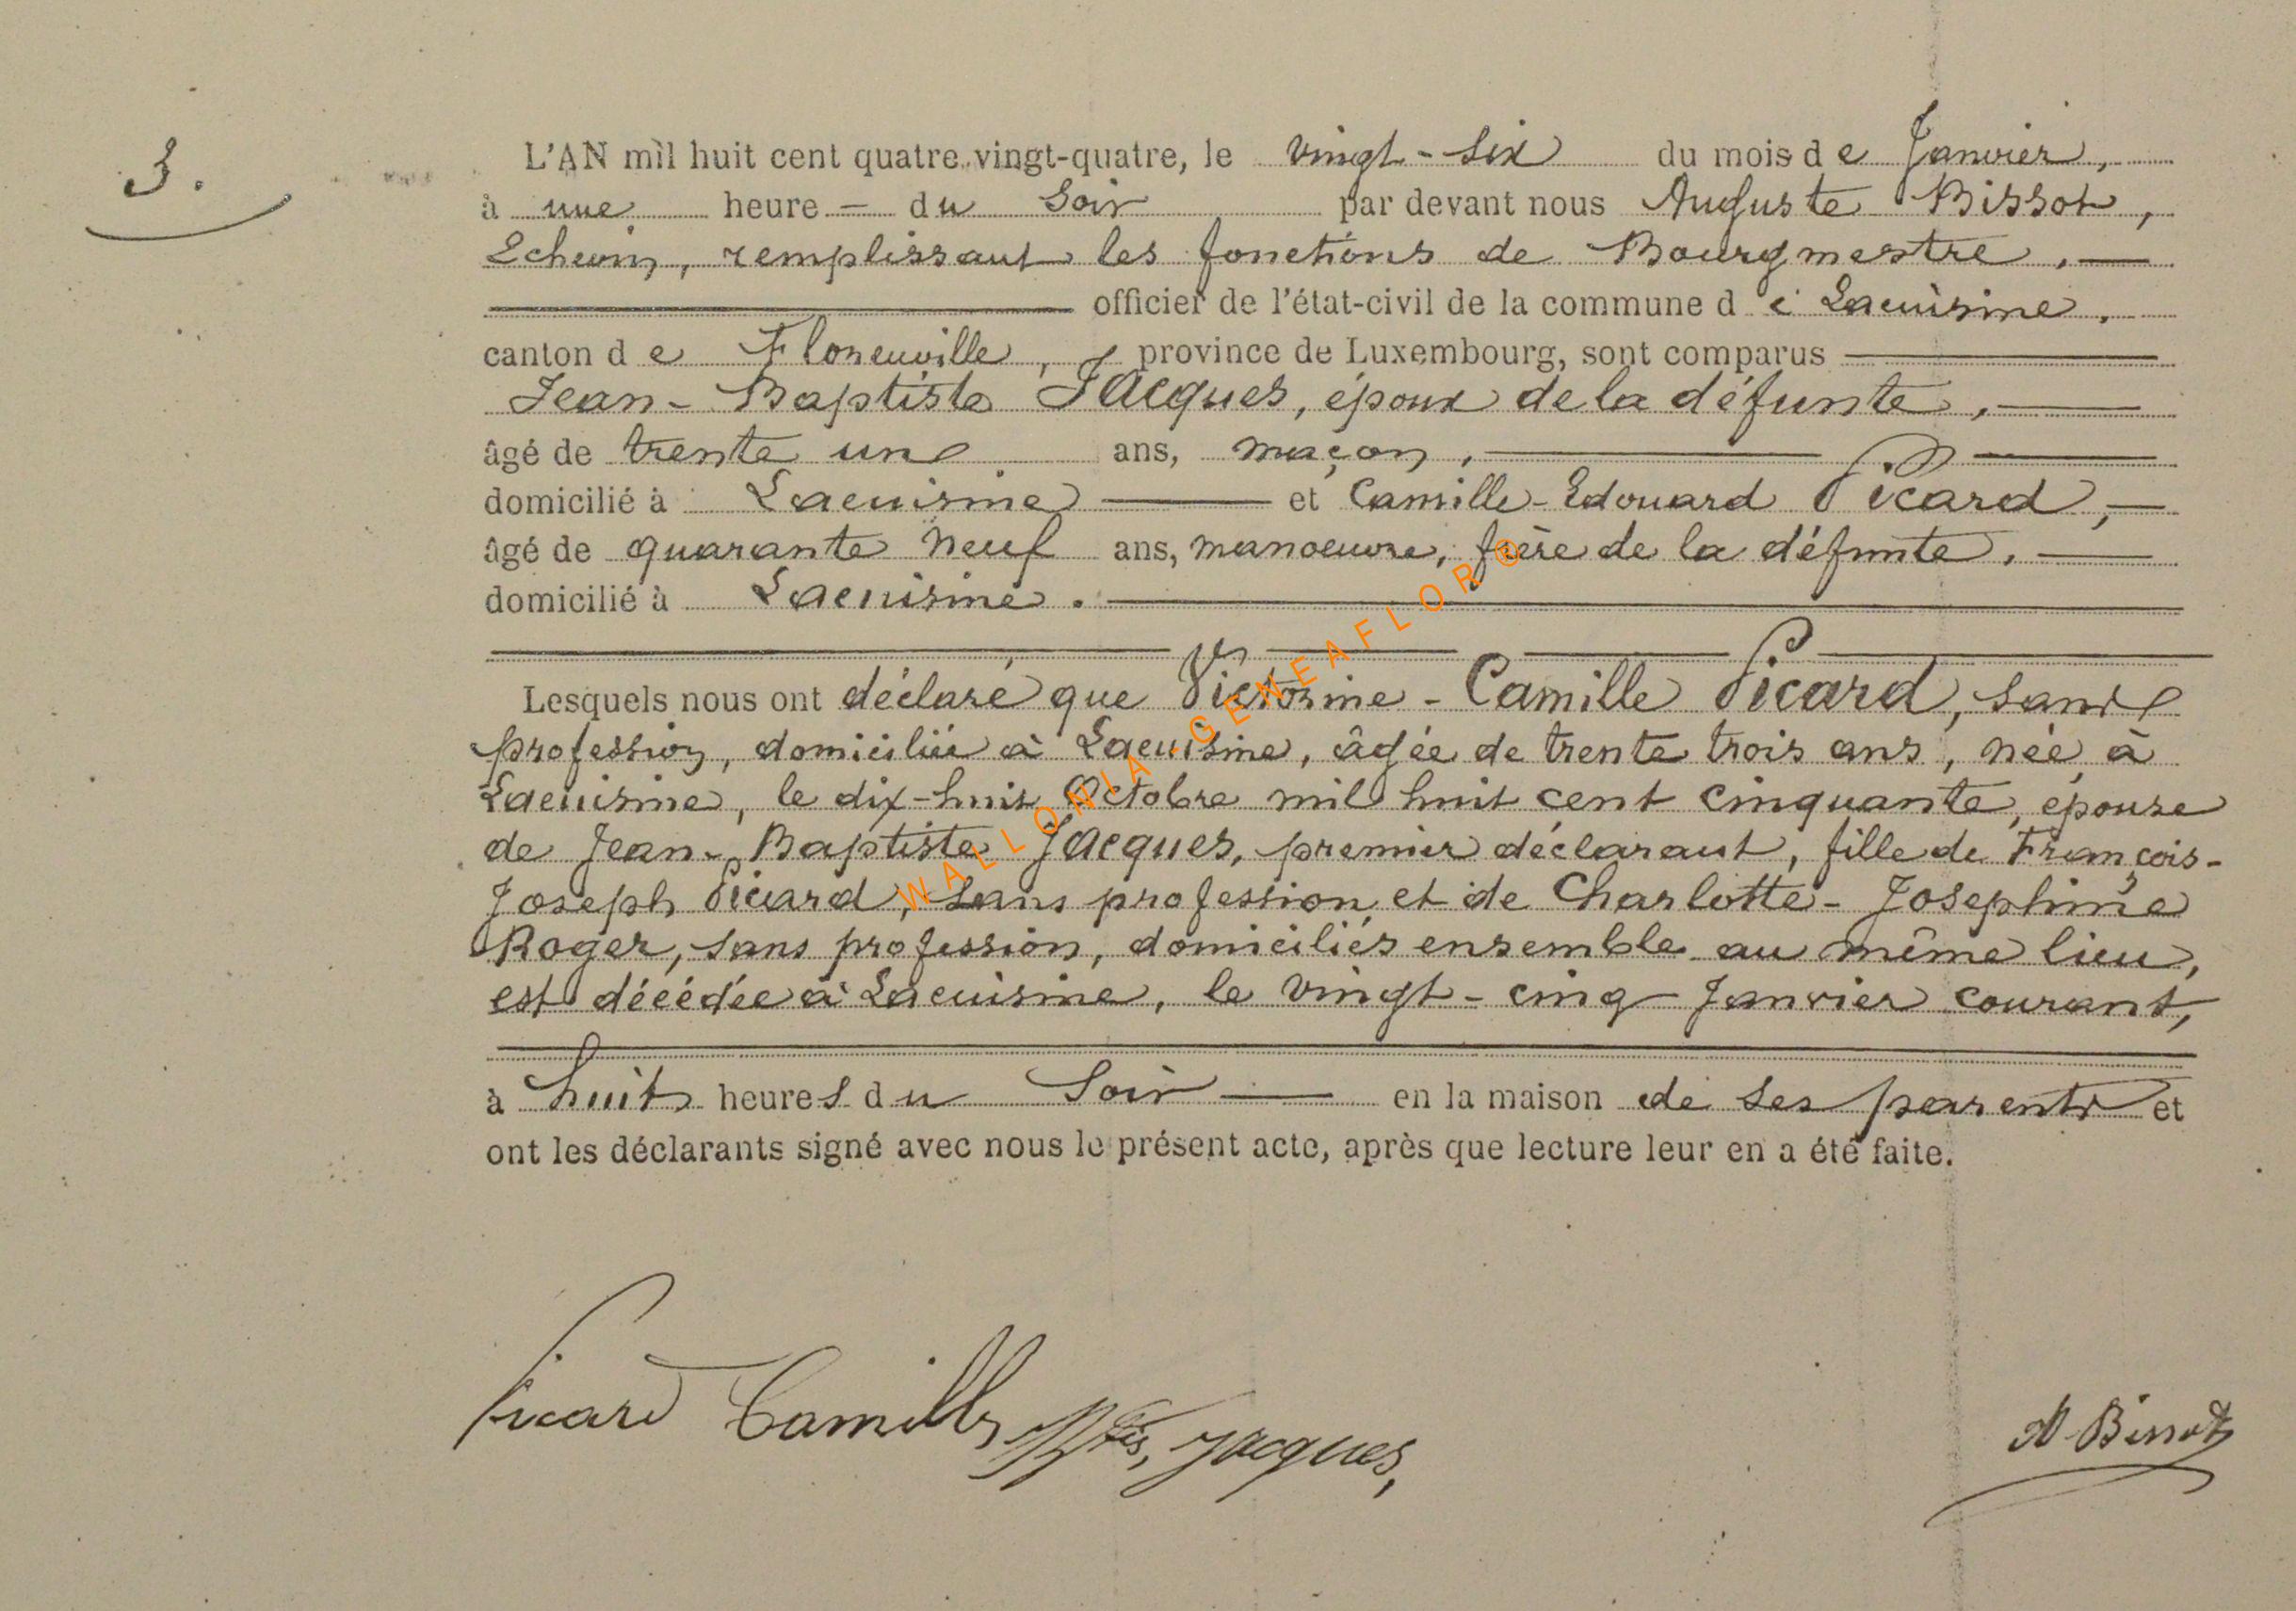 3.
L'AN mil huit cent quatre-vingt-quatre, le vingt-six du mois de Janvier,
à une heure — du Soir par devant nous Auguste Bissot,
Echevin, remplissant les fonctions de Bourgmestre, —
officier de l'état-civil de la commune de Lacuisine.
canton de Florenville, province de Luxembourg, sont comparus —
Jean-Baptiste Jacques, époux de la défunte, —
âgé de trente un ans, maçon, —
domicilié à Lacuisine — et Camille-Edouard Picard, —
âgé de quarante neuf ans, manoeuvre, frère de la défunte, —
domicilié à Lacuisine. —
Lesquels nous ont déclaré que Victorine-Camille Picard, sans
profession, domiciliée à Lacuisine, âgée de trente trois ans, née à
Lacuisine, le dix-huit Octobre mil huit cent cinquante, épouse
de Jean-Baptiste Jacques, premier déclarant, fille de François-
Joseph Picard, sans profession et de Charlotte-Josephine
Roger, sans profession, domiciliés ensemble au même lieu,
est décédée à Lacuisine, le vingt-cinq Janvier courant,
à huit heures du Soir — en la maison de ses parents et
ont les déclarants signé avec nous le présent acte, après que lecture leur en a été faite.
Picard Camille Btis, Jacques,
A Bissot
WALLONIA-GENEAFLOR©